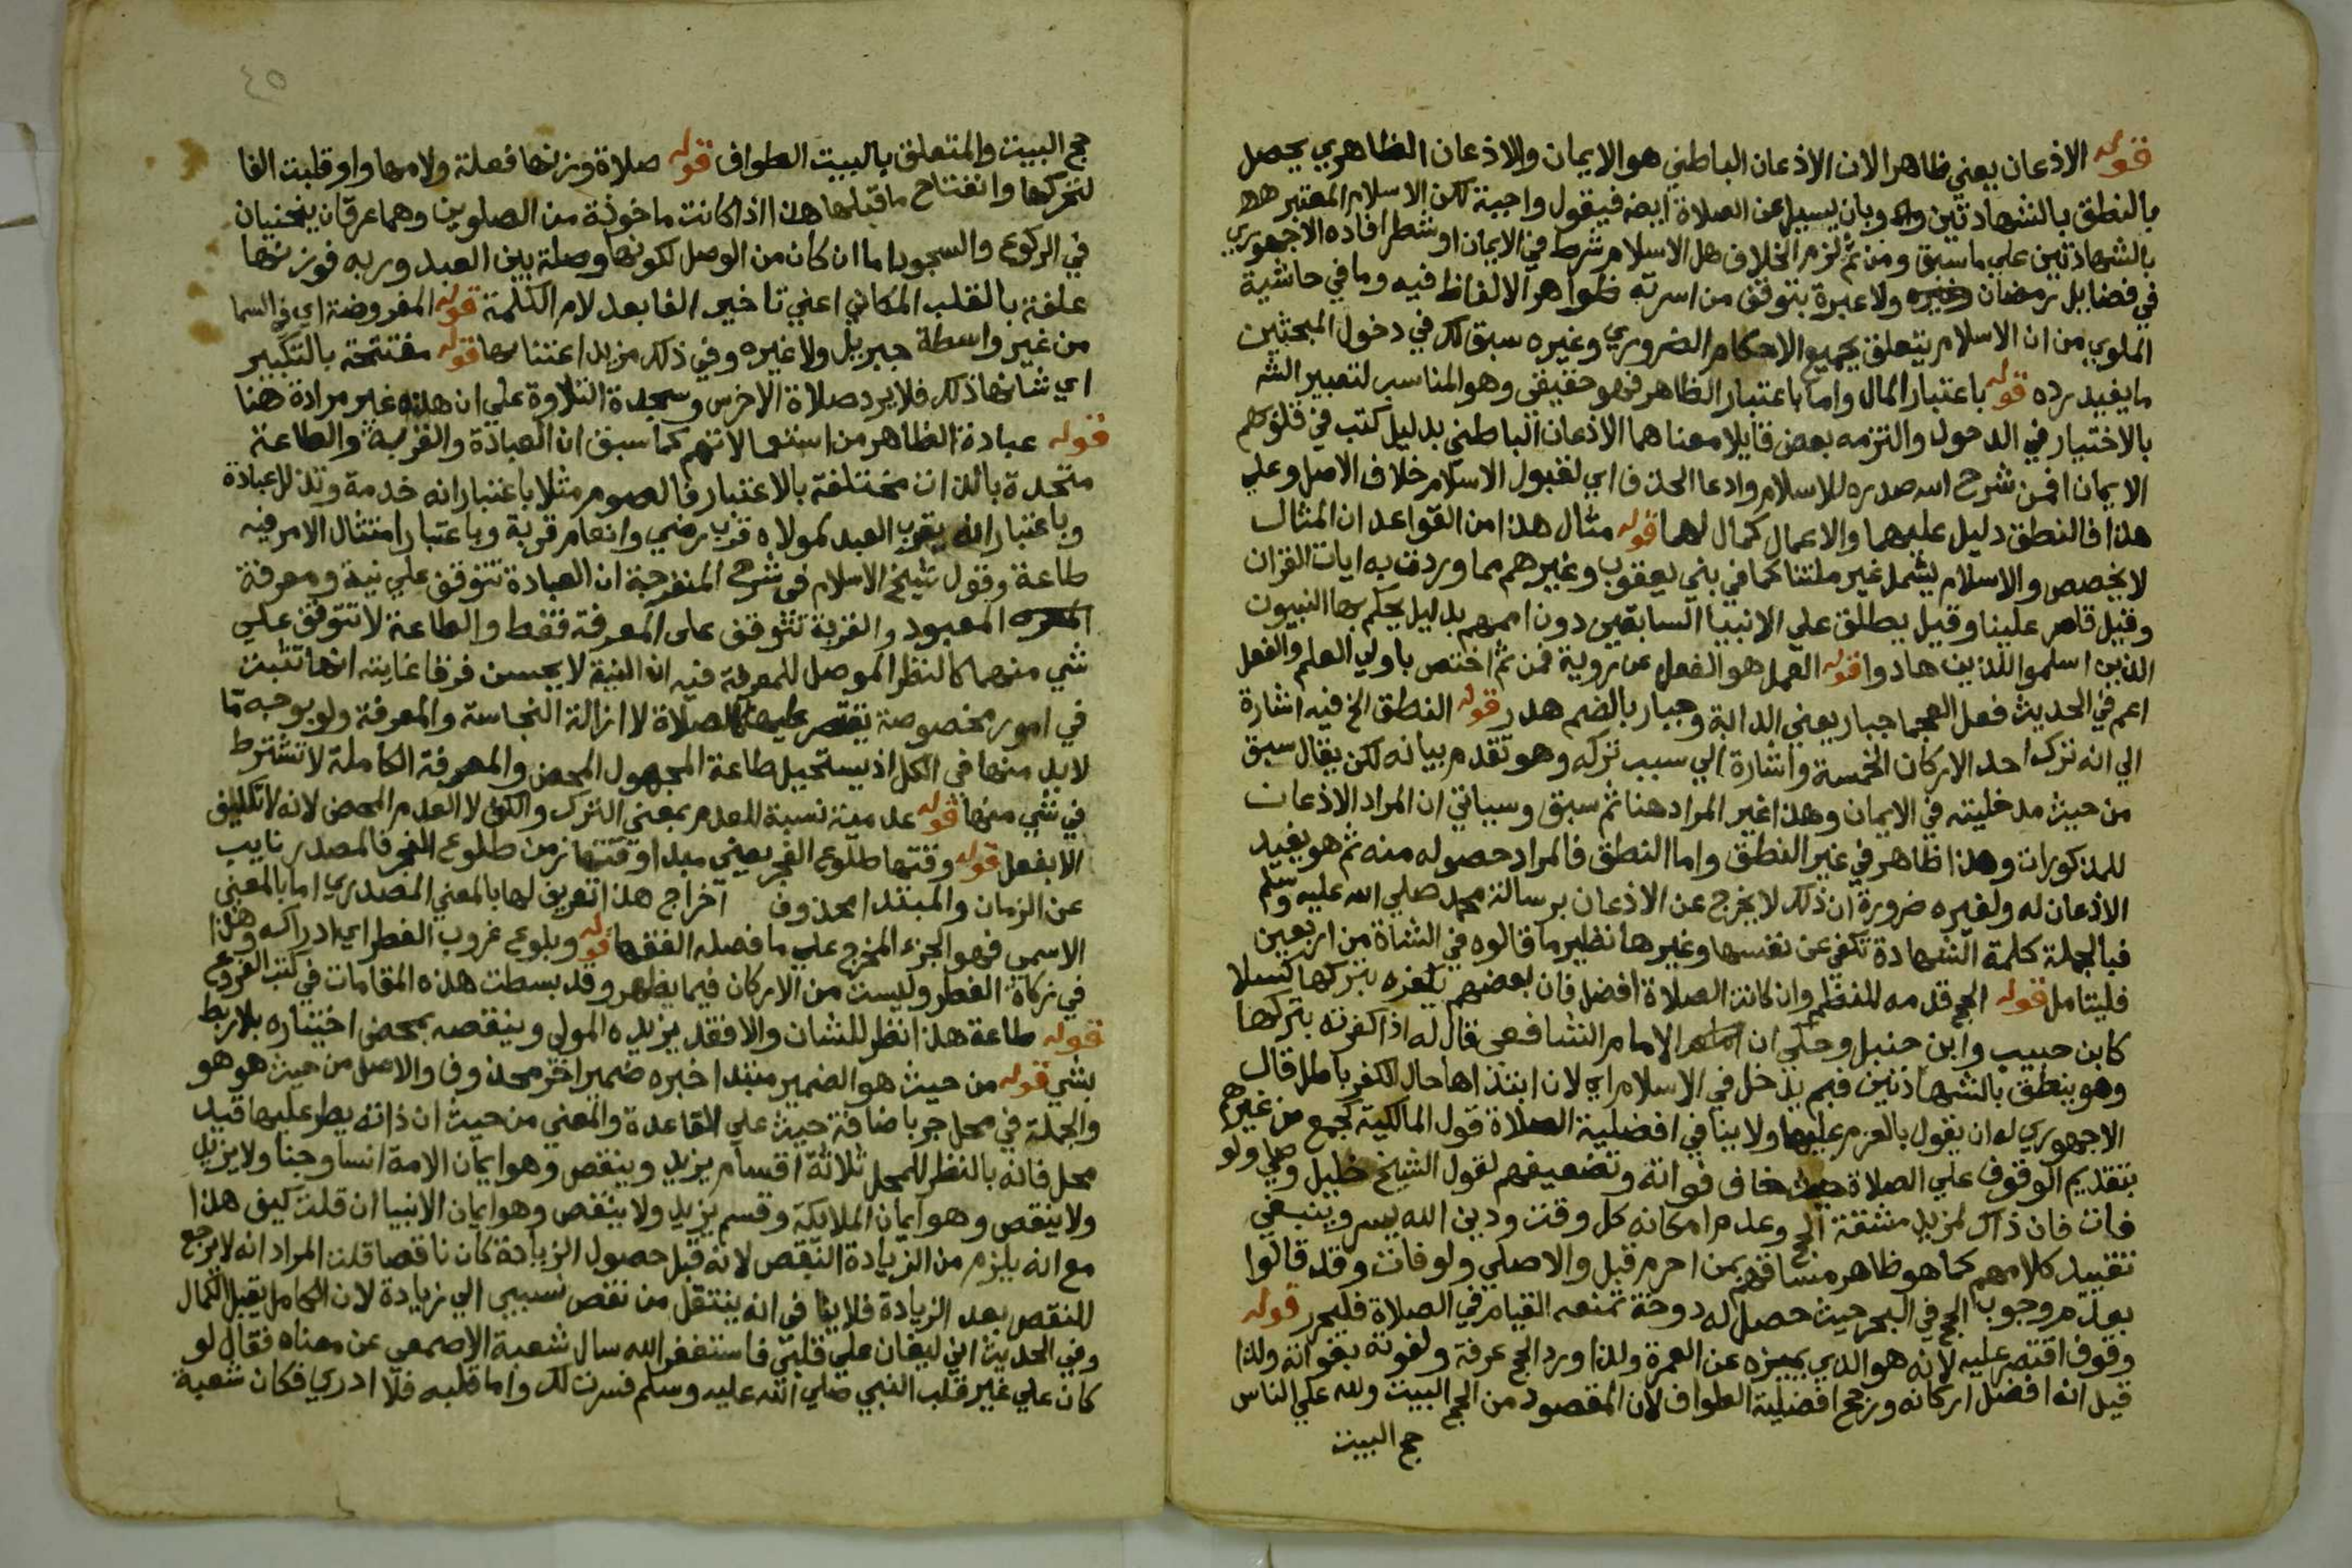 قوله الاذعان يعني ظاهرا لان الاذعان الباطني هو الايمان والاذعان الظاهري يحصل
بالنطق بالشهادتين وبان يسيل عن الصلاة ايضه فيقول واجبة لكن الاسلام المعتبر هو
بالشهادتين علي ما سبق ومن ثم لزم الخلاف هل الاسلام شرط في الايمان او شطر افاده الاجهوري
في فضايل رمضان ولا عبرة بتوقف من اسرته ظواهر الالفاظ فيه وما في حاشية
الملوي من ان الاسلام يتعلق بجميع الاحكام الضروري وغيره سبق لك في دخول المبحثين
ما يفيد رده قوله باعتبار المال واما باعتبار الظاهر فهو حقيقي وهو المناسب لتعبير الشه
بالاختيار في الدخول والتزمه بعض قايلا معناهما الاذعان الباطني بدليل كتب في قلوبهم
الايمان افمن شرح الله صدره للاسلام وادعا الحذف اي لقبول الاسلام خلاف الاصل وعلي
هذا فالنطق دليل عليهما والاعمال كمال لهما قوله مثال هذا من القواعد ان المثال
لا يخصص والاسلام يشمل غير ملتنا كما في بني يعقوب وغيرهم مما وردت به ايات القران
وقيل قاصر علينا وقيل يطلق علي الانبيا السابقين دون اممهم بدليل يحكم بها النبيون
الذين اسلموا للذين هادوا قوله العمل هو الفعل عن روية فمن ثم اختص باولي العلم والفعل
اعم في الحديث فعل العجما جبار يعني الدابة وجبار بالضم هدر قوله النطق الخ فيه اشارة
الي انه ترك احد الاركان الخمسة واشارة الي سبب تركه وهو تقدم بيانه لكن يقال سبق
من حيث مدخليته في الايمان وهذا غير المراد هنا ثم سبق وسياتي ان المراد الاذعان
للمذكورات وهذا ظاهر في غير النطق واما النطق فالمراد حصوله منه ثم هو يفيد
الاذعان له ولغيره ضرورة ان ذلك لا يخرج عن الاذعان برسالة محمد صلي الله عليه وسلم
فبالجملة كلمة الشهادة تكفي عن نفسها وغيرها نظير ما قالوه في الشاة من اربعين
فليتامل قوله الحج قدمه للنظم وان كانت الصلاة افضل فان بعضهم يكفره بتركها كسلا
كابن حبيب وابن حنبل وحكي ان الامام الشافعي قال له اذا كفرته بتركها
وهو ينطق بالشهادتين فبم يدخل في الاسلام اي لان ابتداها حال الكفر باطل قال
الاجهوري له ان يقول بالعزم عليها ولا ينافي افضلية الصلاة قول المالكية كجمع من غيرهم
بتقديم الوقوف علي الصلاة خاف فواته وتضعيفهم لقول الشيخ خليل وصلي ولو
فات فان ذاك لمزيد مشقة الحج وعدم امكانه كل وقت ودين الله يسر وينبغي
تقييد كلامهم كما هو ظاهر مساقهم بمن احرم قبل والا صلي ولو فاتت وقد قالوا
بعدم وجوب الحج في البحر حيث حصل له دوخة تمنعه القيام في الصلاة فليحرر قوله
وقوف اقتصر عليه لانه هو الذي يميزه عن العمرة ولذا ورد الحج عرفة ولفوته بفواته ولذا
قيل انه افضل اركانه ورجح افضلية الطواف لان المقصود من الحج البيت ولله علي الناس
حج البيت
٤٥
حج البيت والمتعلق بالبيت الطواف قوله صلاة وزنها فعلة ولامها واو قلبت الفا
لتحركها وانفتاح ما قبلها هذا اذا كانت ماخوذة من الصلوين وهما عرقان ينحنيان
في الركوع والسجود اما ان كان من الوصل لكونها وصلة بين العبد وربه فوزنها
علفة بالقلب المكاني اعني تاخير الفا بعد لام الكلمة قوله المفروضة اي في السما
من غير واسطة جبريل ولا غيره وفي ذلك مزيد اعتنا بها قوله مفتتحة بالتكبير
اي شانها ذلك فلا يرد صلاة الاخرس وسجدة التلاوة علي ان هذه غير مرادة هنا
قوله عبادة الظاهر من استعمالاتهم كما سبق ان العبادة والقربة والطاعة
متحدة بالذات مختلفة بالاعتبار فالصوم مثلا باعتبار انه خدمة وتذلل عبادة
وباعتبار انه يقرب العبد لمولاه قرب رضي وانعام قربة وباعتبار امتثال الامر فيه
طاعة وقول شيخ الاسلام في شرح المنفرجة ان العبادة تتوقف علي نية ومعرفة
المعبود والقربة تتوقف على المعرفة فقط والطاعة لا تتوقف علي
شي منهما كالنظر الموصل للمعرفة فيه ان النية لا يحسن فرقا غايته انها تثبت
في امور مخصوصة تقتصر عليها كالصلاة لا ازالة النجاسة والمعرفة ولو بوجه ما
لا بد منها في الكل اذ يستحيل طاعة المجهول المحض والمعرفة الكاملة لا تشترط
في شي منها قوله عدمية نسبة للعدم بمعني الترك والكف لا العدم المحض لانه لا تكليف
الا بفعل قوله وقتها طلوع الفجر يعني مبدا وقتها زمن طلوع الفجر فالمصدر نايب
عن الزمان والمبتدا محذوف اخراج هذا تعريف لها بالمعني المصدري اما بالمعني
الاسمي فهو الجزء المخرج علي ما فصله الفقها قوله وبلوغ غروب الفطر اي ادراكه وهذا
في زكاة الفطر وليست من الاركان فيما يظهر وقد بسطت هذه المقامات في كتب الفروع
قوله طاعة هذا نظر للشان والا فقد يزيده المولي وينقصه بمحض اختياره بلا ربط
بشي قوله من حيث هو الضمير مبتدا خبره ضمير اخر محذوف والاصل من حيث هو هو
والجملة في محل جر باضافة حيث علي القاعدة والمعني من حيث ان ذاته يطرا عليها قيد
محل فانه بالنظر للمحل ثلاثة اقسام يزيد وينقص وهو ايمان الامة انسا وجنا ولا يزيد
ولا ينقص وهو ايمان الملايكة وقسم يزيد ولا ينقص وهو ايمان الانبيا ان قلت كيف هذا
مع انه يلزم من الزيادة النقص لانه قبل حصول الزيادة كان ناقصا قلت المراد انه لا يرجع
للنقص بعد الزيادة فلا ينافي انه ينتقل من نقص نسبي الي زيادة لان الكامل يقبل الكمال
وفي الحديث اني ليغان علي قلبي فاستغفر الله سال شعبة الاصمعي عن معناه فقال لو
كان علي غير قلب النبي صلي الله عليه وسلم فسرت لك واما قلبه فلا ادري فكان شعبة